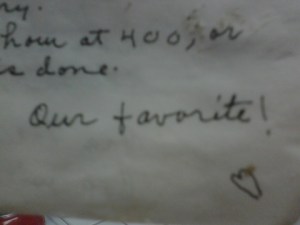 ry.
hour at 400, or
s done.
Our favorite!